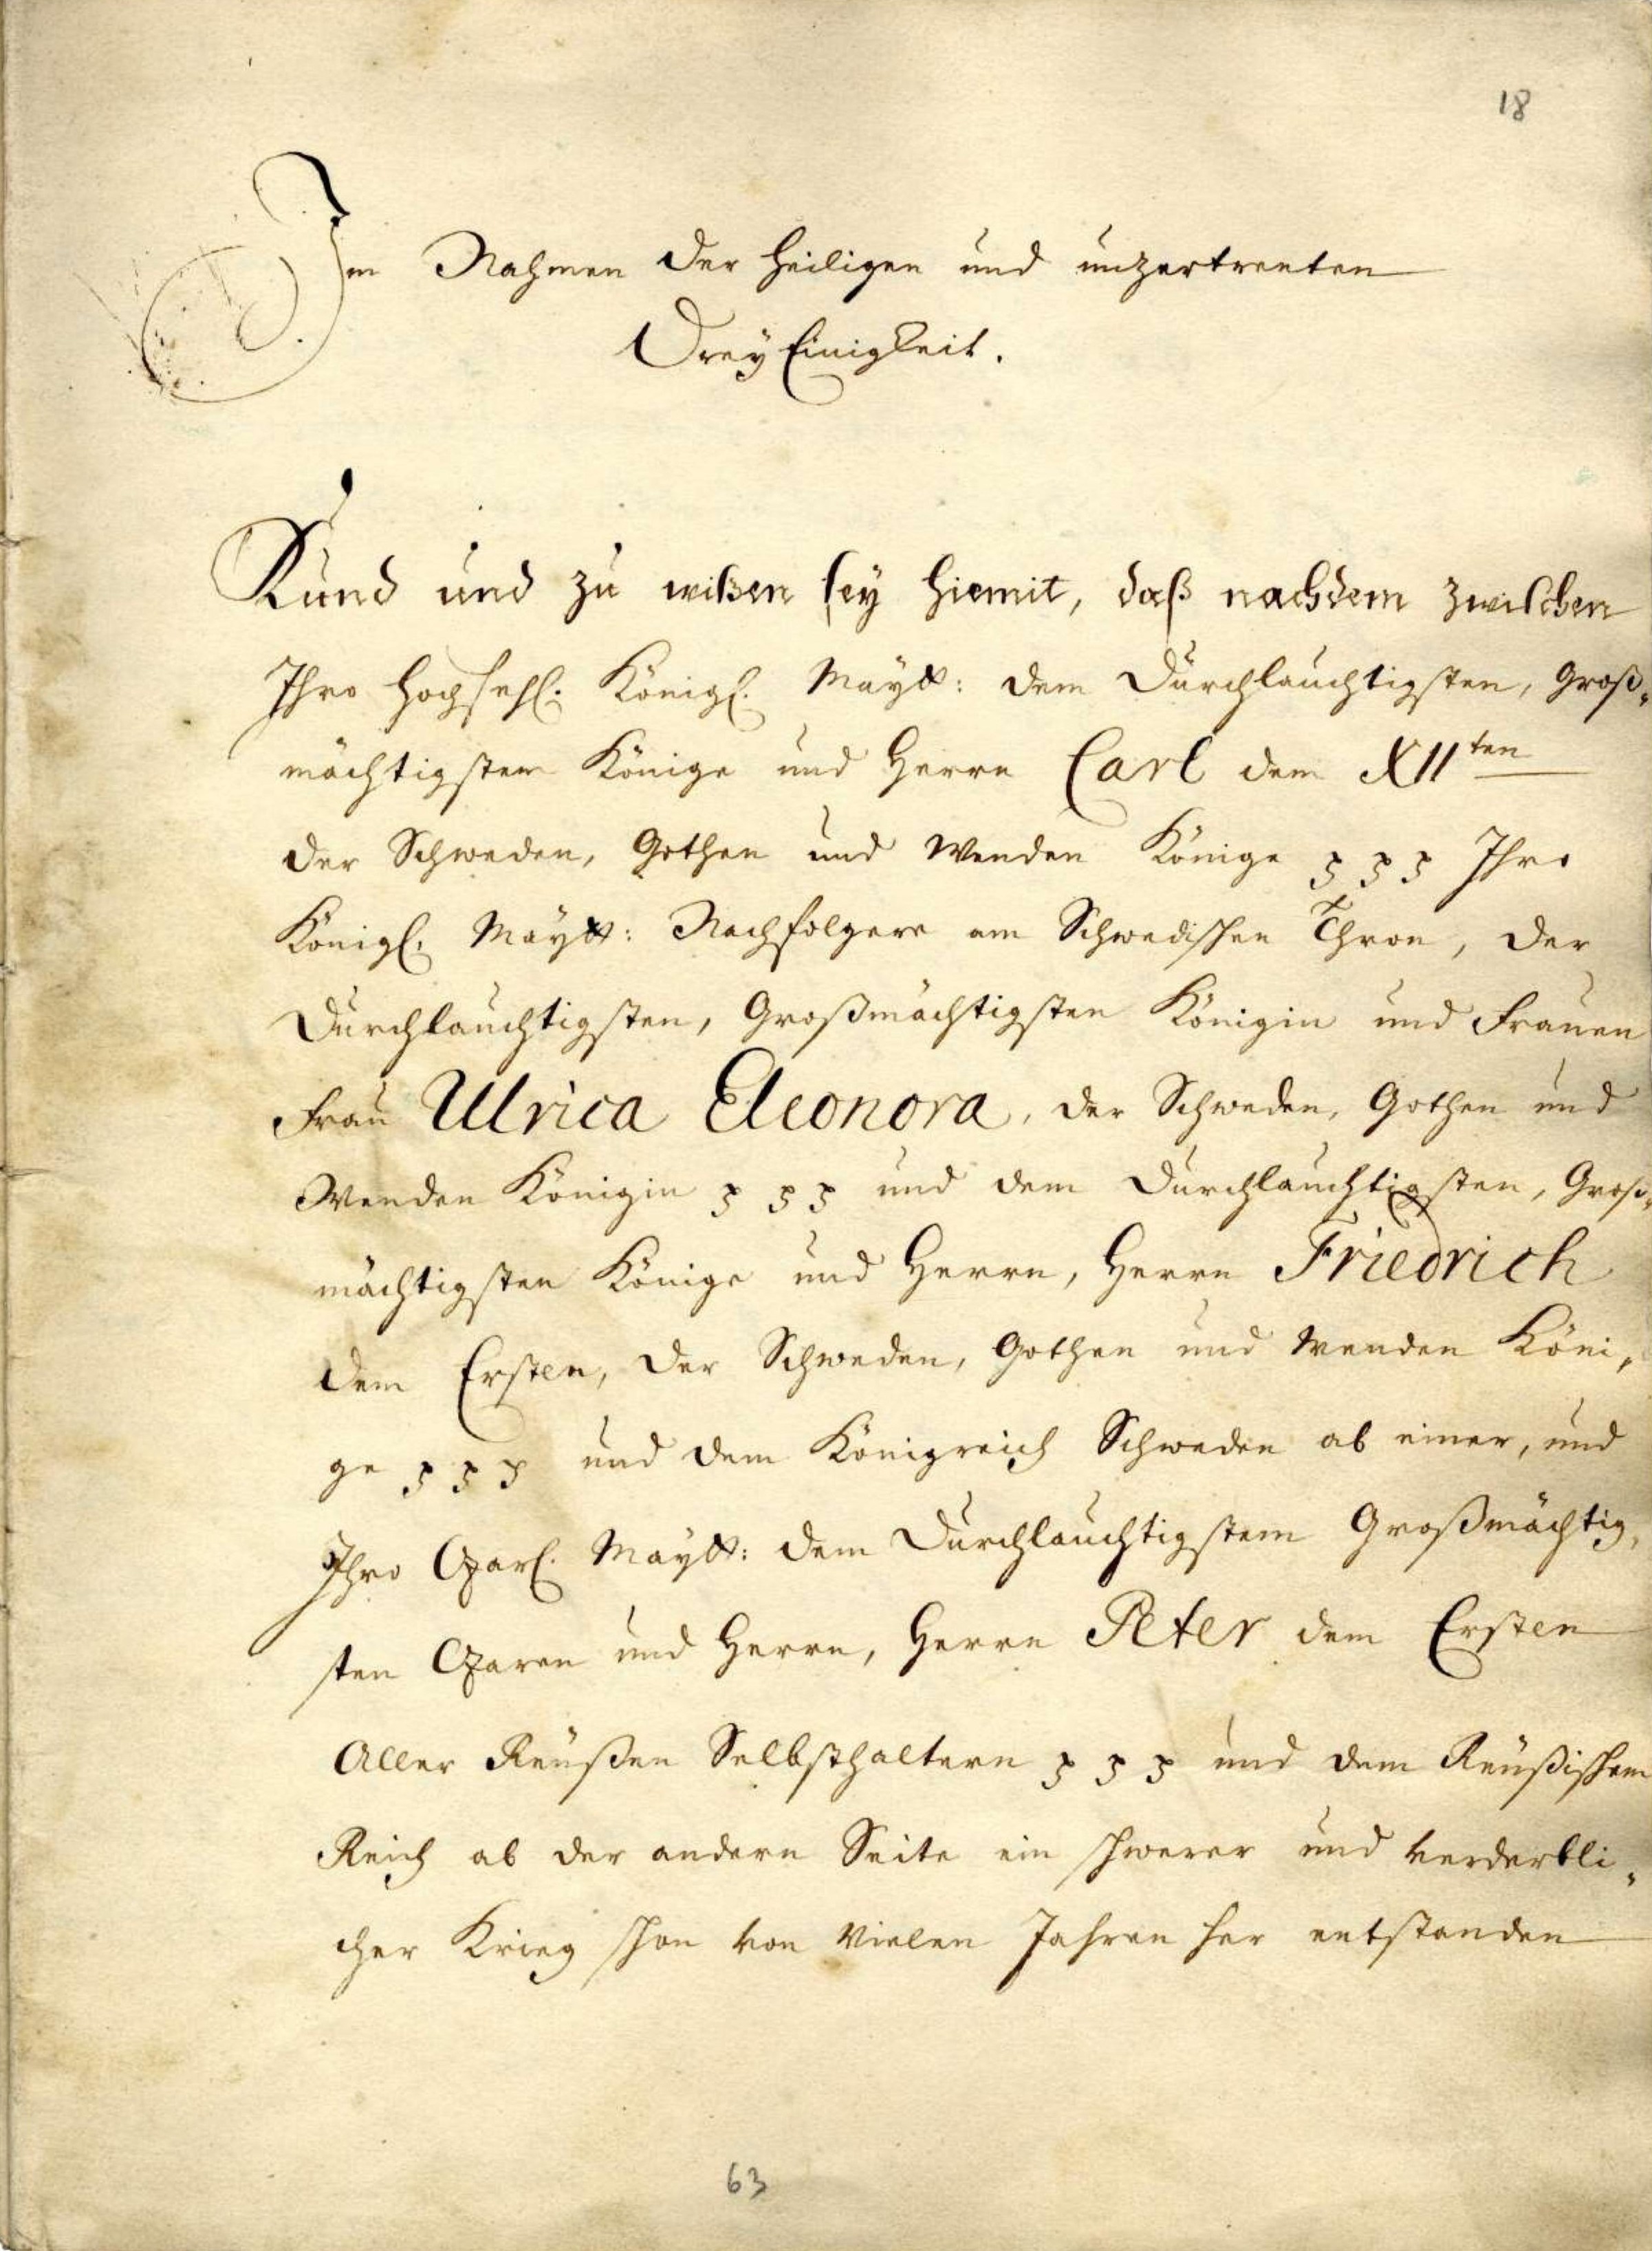 18
Im Nahmen der heiligen und unzertrenten
DreyEinigkeit.
Kund und zu wißen sey hiemit, daß nachdem zwischen
Ihro Hochseel. Königl. Maytt: dem Durchlauchtigsten, Groß-
mächtigsten Könige und Herrn Carl dem XIIten
der Schweden, Gothen und Wenden Könige ꝛ ꝛ ꝛ Ihro
Königl. Maytt: Nachfolgere am Schwedischen Thron, der
Durchlauchtigsten, Großmächtigsten Königin und Frauen
Frau Ulrica Eleonora, der Schweden, Gothen und
Wenden Königin ꝛ ꝛ ꝛ und dem Durchlauchtigsten, Groß-
mächtigsten Könige und Herrn, Herrn Friedrich
dem Ersten, der Schweden, Gothen und Wenden Köni-
ge ꝛ ꝛ ꝛ und dem Königreich Schweden ab einer, und
Ihro Czarl. Maytt: dem Durchlauchtigstem Großmächtig-
sten Czaren und Herrn, Herrn Peter dem Ersten
Aller Reußen Selbsthaltern ꝛ ꝛ ꝛ und dem Reußischem
Reich ab der andern Seite ein schwerer und verderbli-
cher Krieg schon von vielen Jahren her entstanden
63